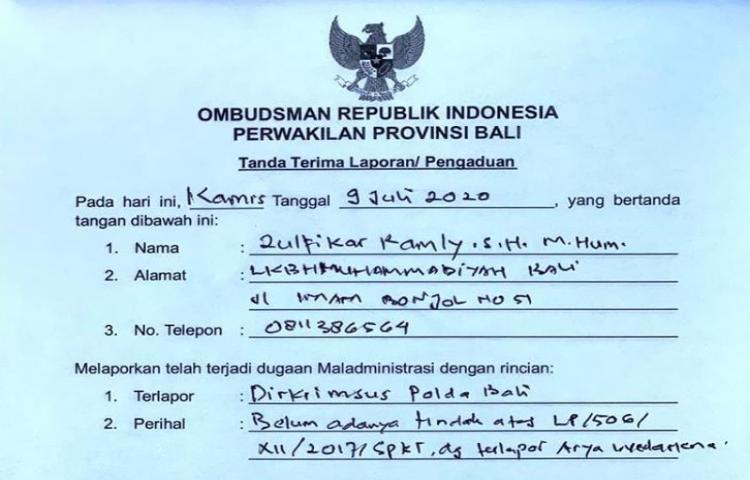 OMBUDSMAN REPUBLIK INDONESIA
PERWAKILAN PROVINSI BALI
Tanda Terima Laporan/ Pengaduan
Pada hari ini, Kamis Tanggal 9 Juli 2020, yang bertanda
tangan dibawah ini:
1. Nama : Zulfikar Ramly. S.H. M.Hum.
2. Alamat : LKBHMUHAMMADIYAH BALI
Jl IMAM BONJOL NO 51
3. No. Telepon : 0811386564
Melaporkan telah terjadi dugaan Maladministrasi dengan rincian:
1. Terlapor : Dirkrimsus Polda Bali
2. Perihal : Belum adanya tindak atas LP/506/
XII/2017/SPKT, dg terlapor Arya Wedakarna